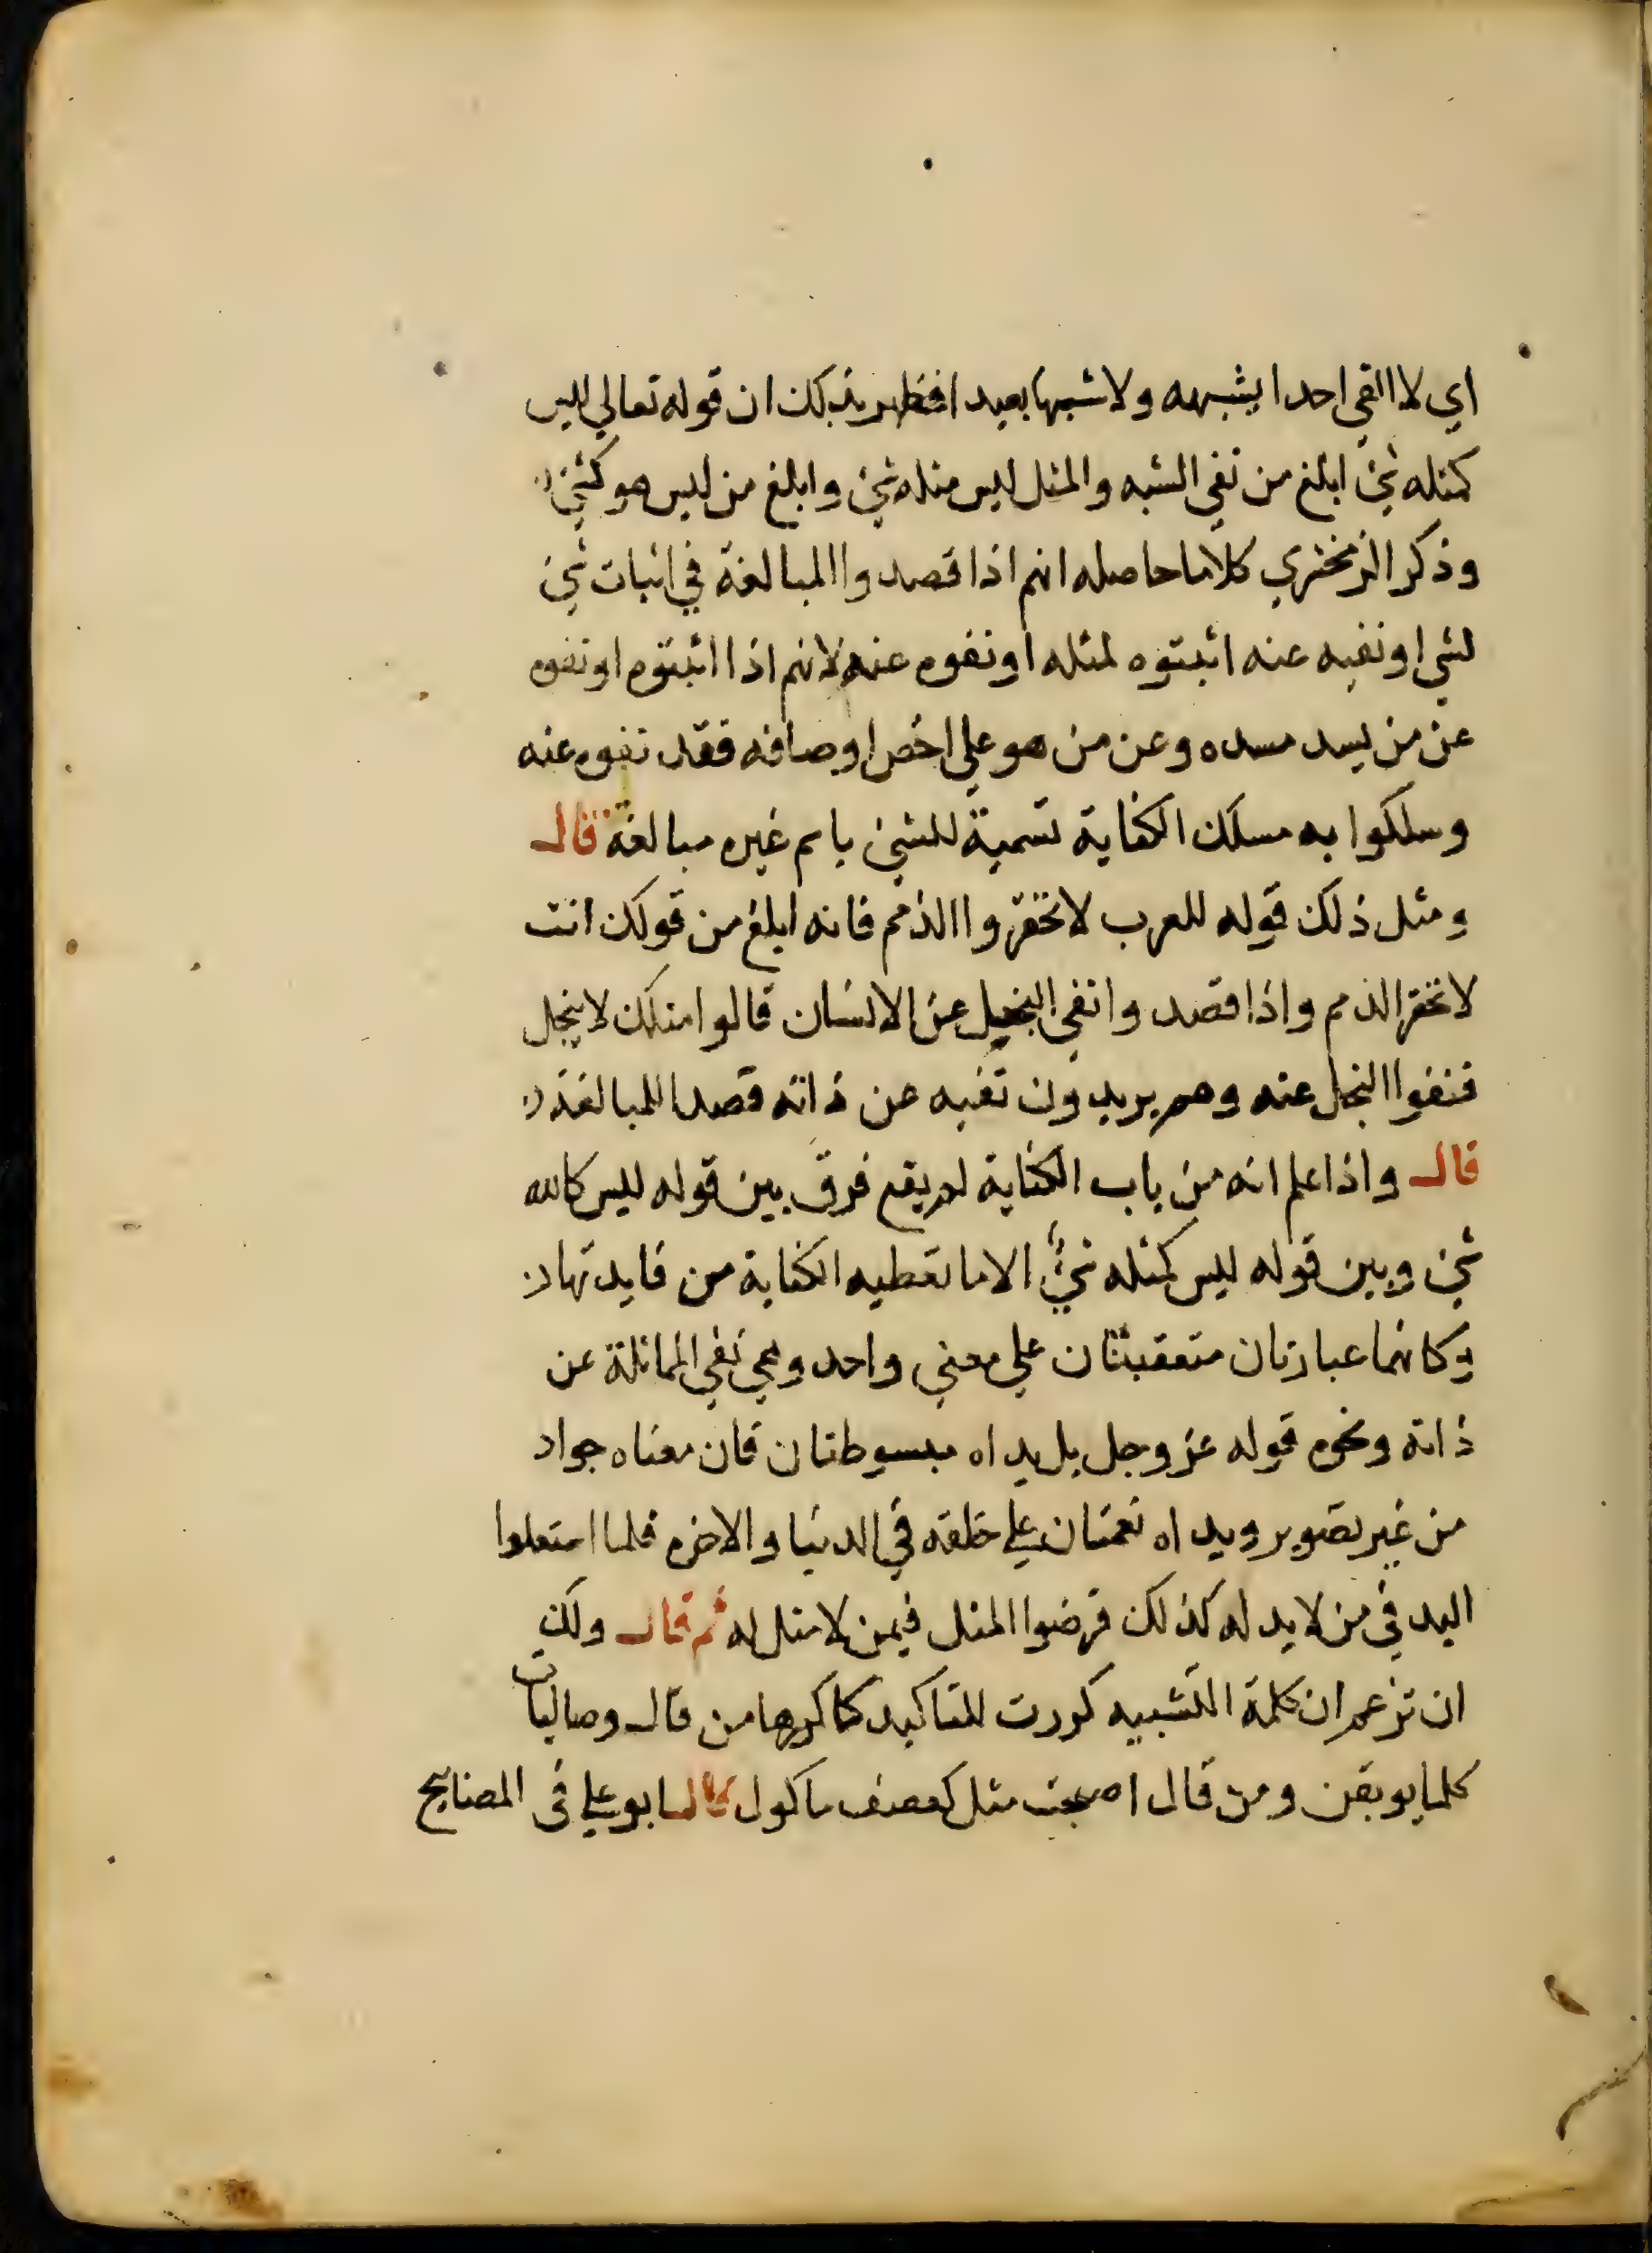 اي لا القي احدا يشبهه ولا شبها بعيدا فظهر بذلك ان قوله تعالي ليس
كمثله شئ ابلغ من نفي الشبه والمثل ليس مثله شئ وابلغ من ليس هو كشئ
وذكر الزمخشري كلاما حاصله انهم اذا قصدوا المبالغة في اثبات شئ
لشي او نفيه عنه اثبتوه لمثله او نفوه عنه لانهم اذا اثبتوه او نفوه
عن من يسد مسده وعن من هو علي اخص اوصافه فقد نفوه عنه
وسلكوا به مسلك الكناية تسمية للشئ باسم غيره مبالغة قال
ومثل ذلك قوله للعرب لا تخفروا الذمم فانه ابلغ من قولك انت
لا تخفر الذمم واذا قصدوا نفي البخيل عن الانسان قالوا مثلك لا يبخل
فنفوا البخل عنه وهم يريدون نفيه عن ذاته قصدا للمبالغة
قال واذا علم انه من باب الكناية لم يقع فرق بين قوله ليس كالله
شئ وبين قوله ليس كمثله شئ الا ما تعطيه الكناية من فايدتها
وكانهما عبارتان متعقبتان علي معني واحد وهي نفي المماثلة عن
ذاته ونحوه قوله عز وجل بل يداه مبسوطتان فان معناه جواد
من غير تصوير ويداه نعمتان علي خلقه في الدنيا والاخره فلما استعلوا
اليد في من لا يد له كذلك فرضوا المثل فيمن لا مثل له ثم قال ولك
ان تزعم ان كلمة التشبيه كررت للتاكيد كما كررها من قال وصاليات
كلما يوبقن ومن قال اصبحت مثل كعصف ماكول قال ابو علي في المصابيح